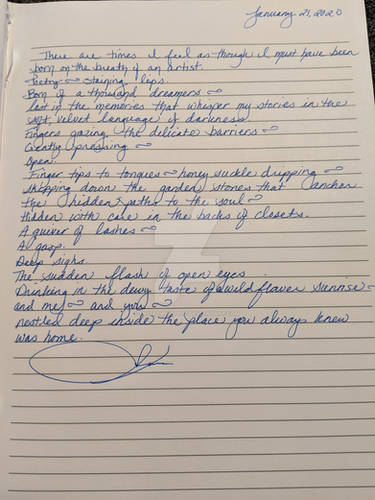 January 21, 2020
There are times I feel as though I must have been
born on the breath of an artist.
Poetry ~ staining lips.
Born of a thousand dreamers ~
lost in the memories that whisper my stories in the
soft, velvet language of darkness
Fingers grazing the delicate barriers ~
Gently pressing ~
Open.
Finger tips to tongues ~ honey suckle dripping ~
skipping down the garden stones that anchor
the hidden paths to the soul ~
Hidden with care in the backs of closets.
A quiver of lashes ~
A gasp.
Deep sighs.
The sudden flash of open eyes
Drinking in the dewy taste of a wildflower sunrise ~
and me ~ and you ~
nestled deep inside the place you always knew
was home.